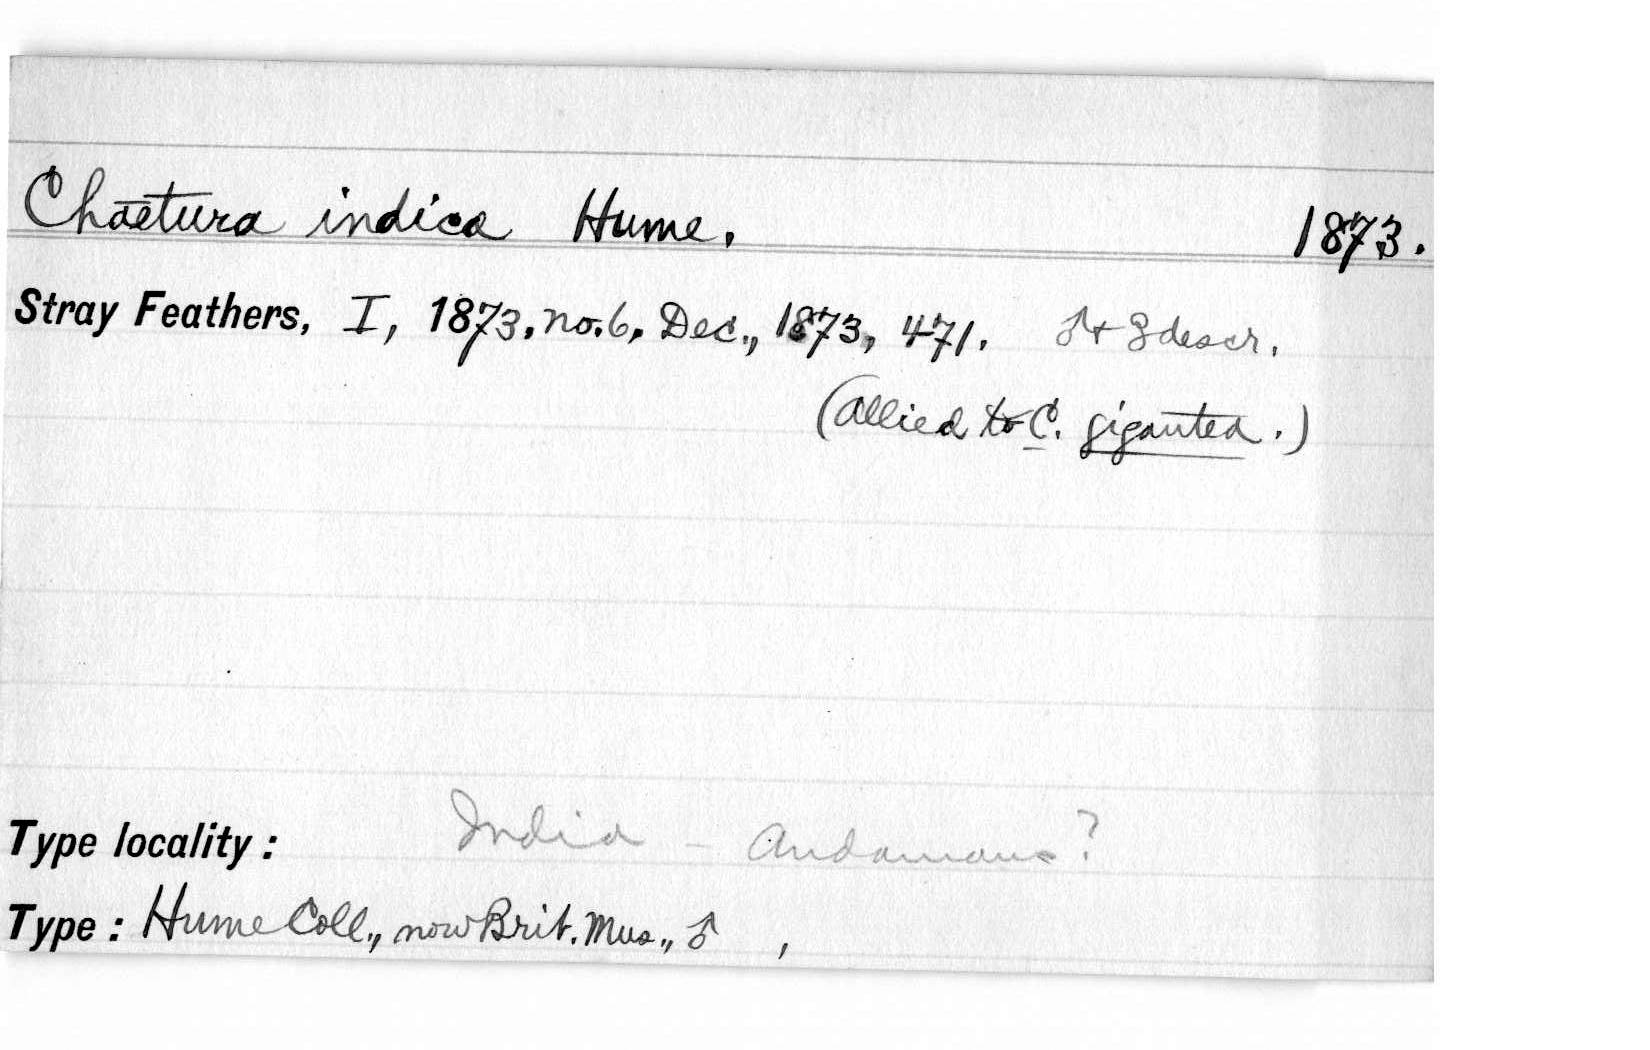 Chaetura indica Hume. 1873.
Stray Feathers, I, 1873, no. 6, Dec., 1873, 471. ♂ + ♀ descr.
(Allied to C. gigantea.)
Type locality: India - Andamans?
Type: Hume Coll., now Brit. Mus., ♂ ,